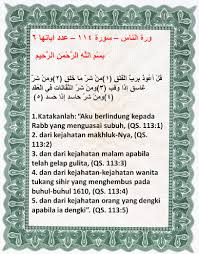 ورة الناس – سورة ١١٤ – عدد آياتها ٦
بِسْمِ اللَّهِ الرَّحْمَنِ الرَّحِيمِ
قُلْ أَعُوذُ بِرَبِّ الْفَلَقِ (١) مِنْ شَرِّ مَا خَلَقَ (٢) وَمِنْ شَرِّ
غَاسِقٍ إِذَا وَقَبَ (٣) وَمِنْ شَرِّ النَّفَّاثَاتِ فِي الْعُقَدِ
(٤) وَمِنْ شَرِّ حَاسِدٍ إِذَا حَسَدَ (٥)
1.Katakanlah: "Aku berlindung kepada
Rabb yang menguasai subuh, (QS. 113:1)
2. dan dari kejahatan makhluk-Nya, (QS.
113:2)
3. dan dari kejahatan malam apabila
telah gelap gulita, (QS. 113:3)
4. dan dari kejahatan-kejahatan wanita
tukang sihir yang menghembus pada
buhul-buhul 1610, (QS. 113:4)
5. dan dari kejahatan orang yang dengki
apabila ia dengki". (QS. 113:5)